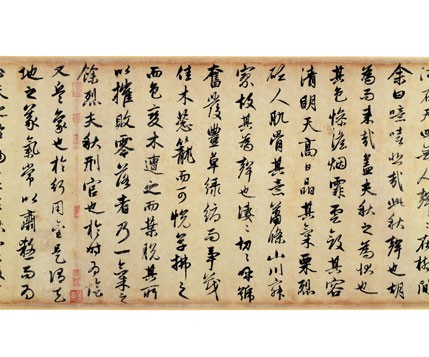 河在天四無人聲聲在樹間
余曰噫嘻悲哉此秋聲也胡
為而來哉蓋夫秋之為狀也
其色慘淡烟霏雲斂其容
清明天高日晶其氣栗烈
砭人肌骨其意蕭條山川寂
寥故其為聲也淒〻切〻呼號
奮發豐草綠縟而爭茂
佳木葱蘢而可悅草拂之
而色變木遭之而葉脫其所
以摧敗零落者乃一氣之
餘烈夫秋刑官也於時為陰
又兵象也於行用金是謂天
地之義氣常以肅殺而為